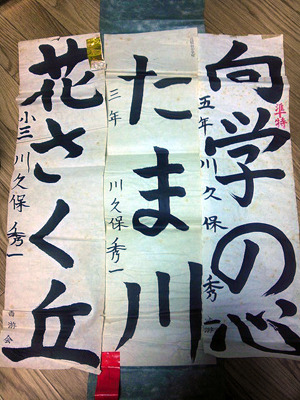 準特
向学の心
五年 川久保 秀一
たま川
三年 川久保 秀一
花さく丘
小三 川久保 秀一